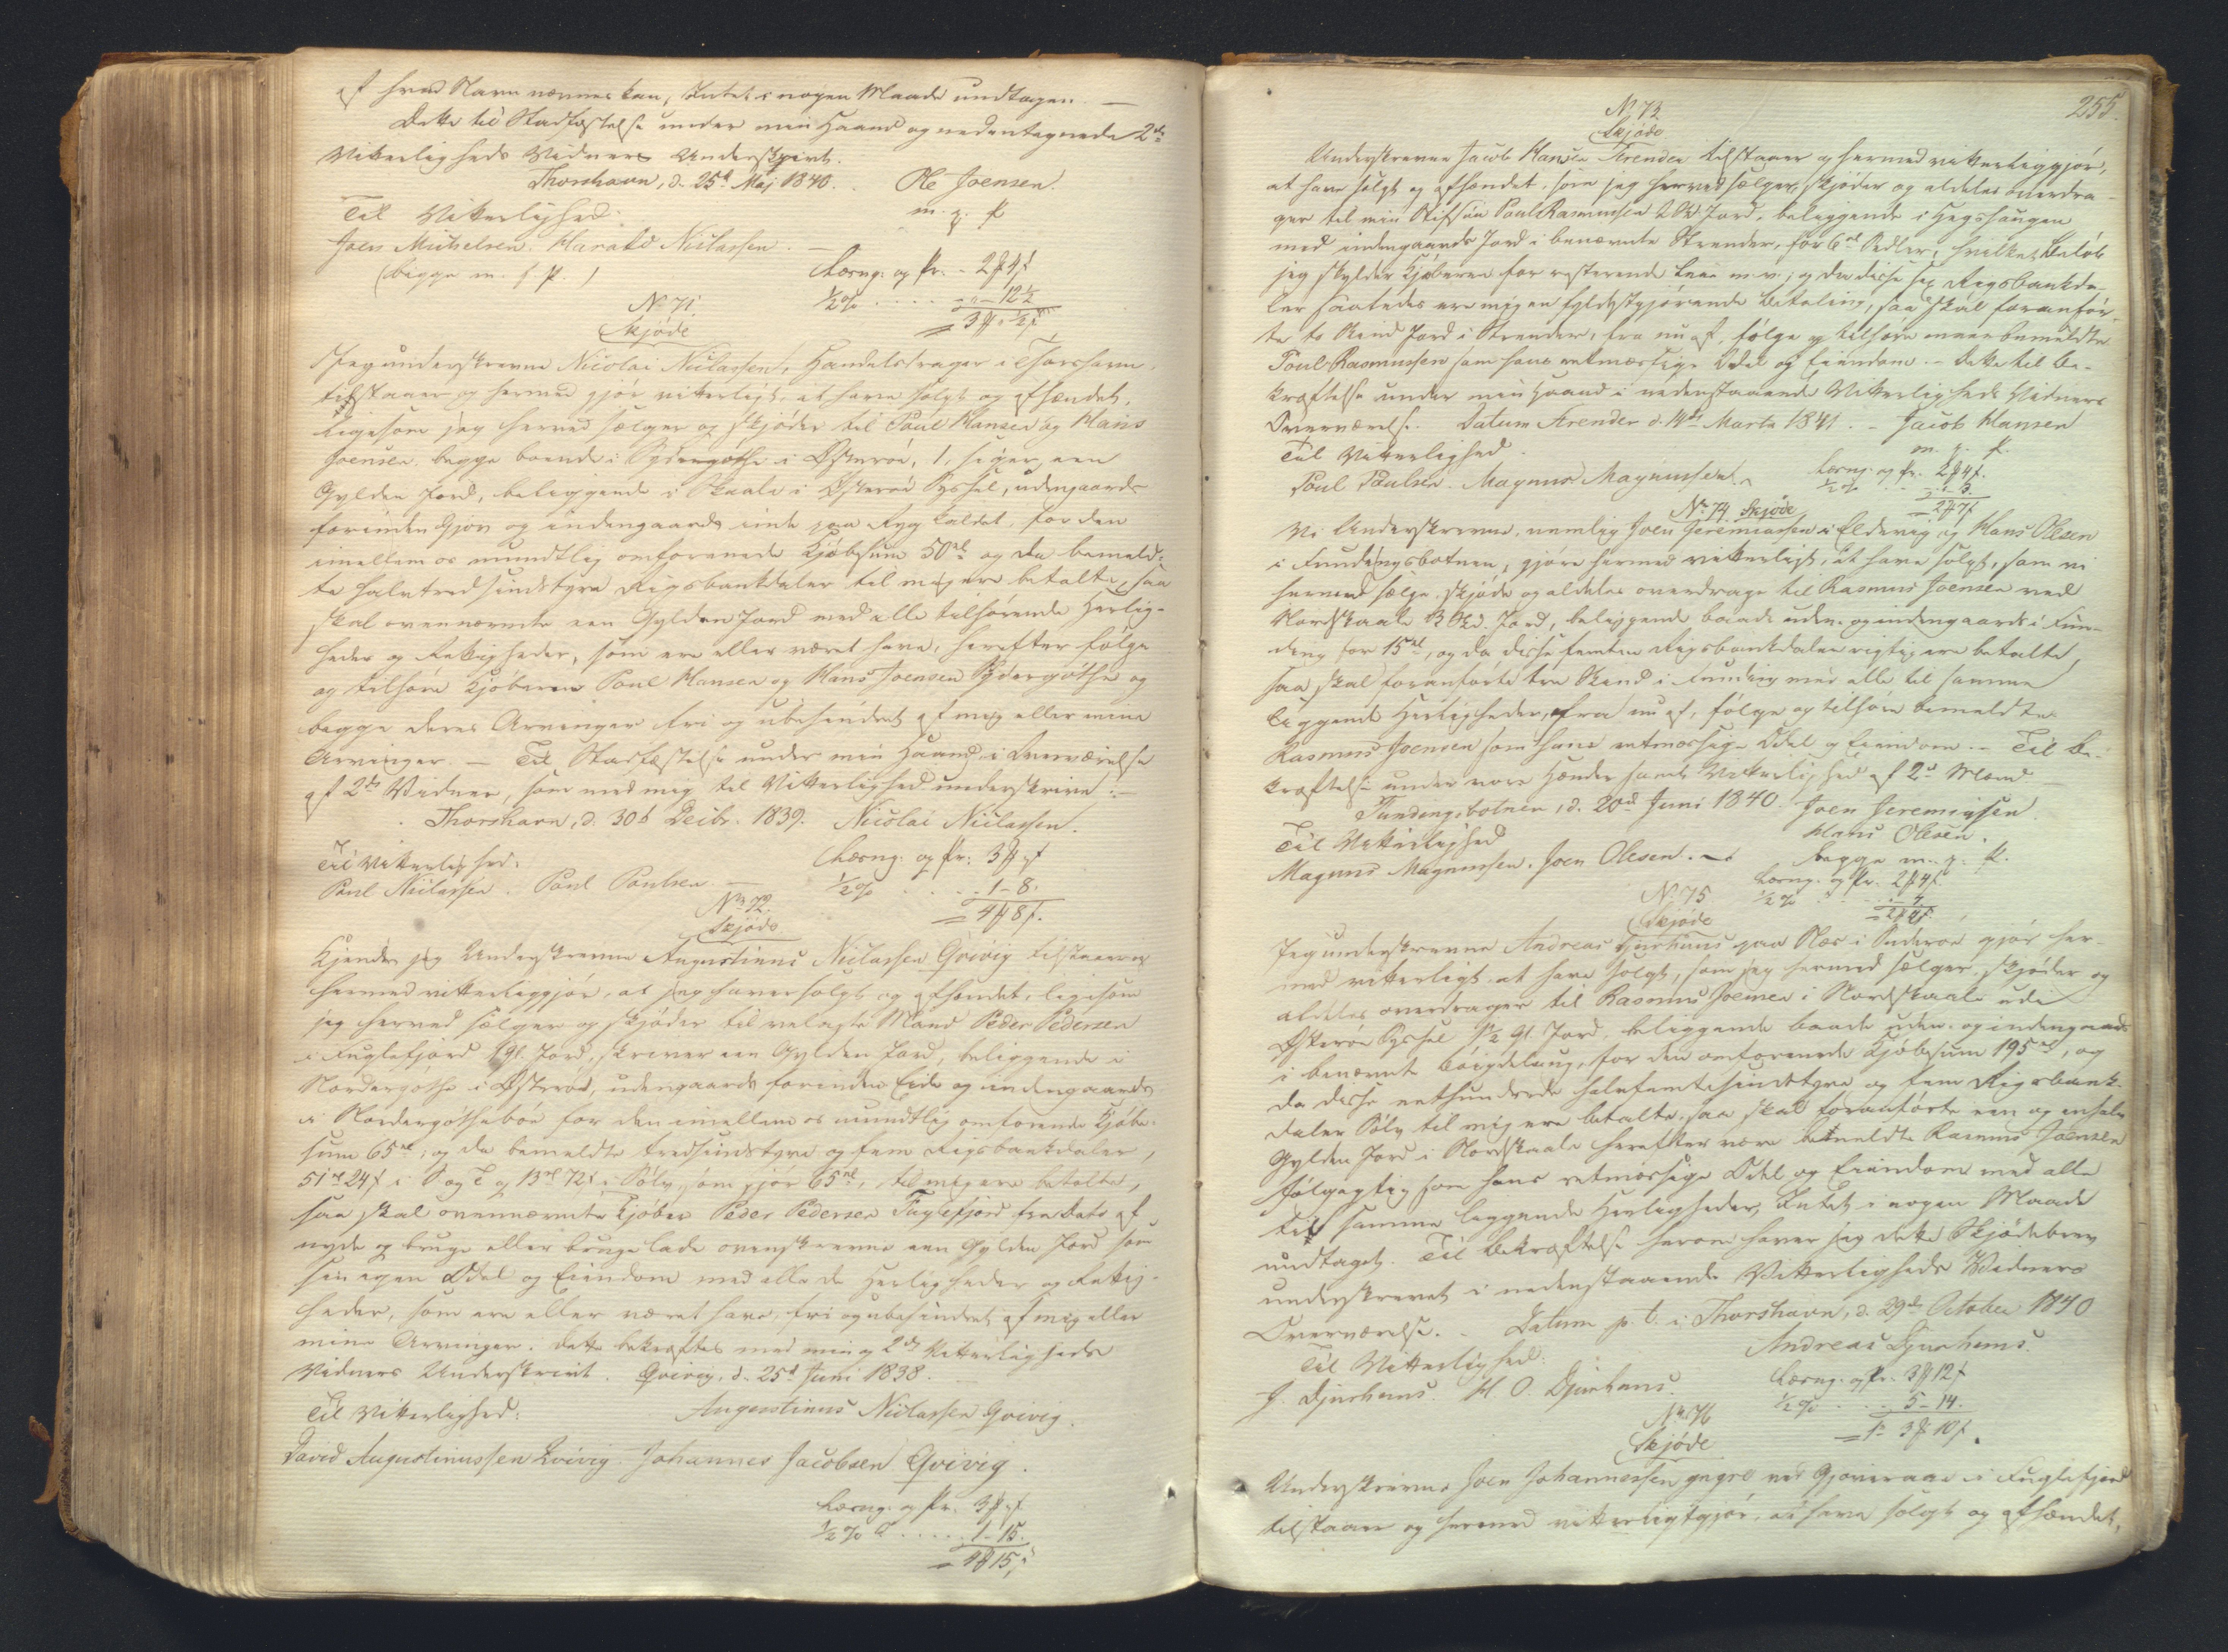 af hvad Navn nævnes kan, Intet i nogen Maade undtagen. —
Dette til Stadfæstelse under min Haand og nedentegnede 2de
Vitterligheds Vidners Underskrivt.
Thorshavn, d. 25d Maj 1840. Ole Joensen.
m. g. P
Til Vitterlighed:
Joen Michelsen. Harald Niclassen. —
(begge m. f. P.)
Læsng: og Pr. - 2 4
½% . . . . - " - 12½
= 3 " ½
No 71.
Skjøde
Jeg underskrevne Nicolai Niclassen, Handelsbruger i Thorshavn,
tilstaaer og hermed gjör vitterligt, at have solgt og afhændet,
ligesom jeg herved sælger og skjöder til Poul Hansen og Hans
Joensen, begge boende i Sydregöthe i Österöe, 1, siger een
Gylden Jord, beliggende i Skaale i Österöe Syssel, udengaards
forinden Gjov og indengaards inde paa Ryg kaldet, for den
imellem os mundtlig omforenede Kjöbesum 50rd og da bemeld-
te halvtredsindstyve Rigsbankdaler til mig ere betalte, saa
skal ovennævnte een Gylden Jord med alle tilhørende Herlig-
heder og Rettigheder, som ere eller været have, herefter følge
og tilhøre Kjøberne Poul Hansen og Hans Joensen Sydergöthe og
begge deres Arvinger fri og ubehindret af mig eller mine
Arvinger. — Til Stadfæstelse under min Haand i Overværelse
af 2de Vidner, som med mig til Vitterlighed underskrive: —
Thorshavn, d. 30t Decbr. 1839. Nicolai Niclassen.
Til Vitterlighed:
Poul Niclassen. Poul Poulsen. —
Læsng: og Pr: 3 "
½% . . . . 1 - 8.
= 4 8
No 72.
Skjøde
Kjender jeg Underskrevne Augustinus Niclassen Qvivig tilstaaer og
hermed vitterliggjör, at jeg haver solgt og afhændet, ligesom
jeg herved sælger og skjöder til velagte Mand Peder Pedersen
i Fuglefjord 1 Gl. Jord, skriver een Gylden Jord, beliggende i
Nordregöthe i Österöe, udengaards forinden Eide og indengaards
i Nordregöthebøe for den imellem os mundtlig omforende Kjöbe-
sum 65rd, og da bemeldte tredsindstyve og fem Rigsbankdaler,
51rd 24 i S og T og 13rd 72 i Sölv, som gjör 65rd, til mig ere betalte,
saa skal ovennævnte Kjøber Peder Pedersen Fuglefjord fra dato af
nyde og bruge eller bruge lade ovenskrevne een Gylden Jord som
sin egen Odel og Eiendom med alle de Herligheder og Rettig-
heder, som ere eller været have, fri og ubehindret af mig eller
mine Arvinger. Dette bekræftes med min og 2de Vitterligheds
Vidners Underskrivt. Qvivig, d. 25d Juni 1838. —
Til Vitterlighed: Augustinus Niclassen Qvivig.
David Augustinussen Qvivig. Johannes Jacobsen Qvivig.
Læsng. og Pr. 3 "
½% . . . . 1 - 15.
= 4 15
255.
No 73
Skjøde
Underskrevne Jacob Hansen Strender tilstaaer og hermed vitterliggjør,
at have solgt og afhændet, som jeg herved sælger, skjøder og aldeles overdra-
ger til min Stifsøn Poul Rasmussen 2 Sk Jord, beliggende i Hegshaugen
med indengaards Jord i benævnte Strender, for 6rd Sedler, hvilket Beløb
jeg skylder Kjøberen for resterende Leie m. v.; og da disse sex Rigsbankda-
ler saaledes ere mig en fyldestgjørende Betaling, saa skal foranfør-
te to Skind Jord i Strender, fra nu af, følge og tilhøre meerbemeldte
Poul Rasmussen som hans retmæssige Odel og Eiendom. — Dette til Be-
kræftelse under min Haand i nedenstaaende Vitterligheds Vidners
Overværelse. Datum Strender d. 14de Marts 1841. — Jacob Hansen
m. g. P.
Til Vitterlighed.
Poul Poulsen. Magnus Magnussen.
Læsng. og Pr. 2 4
½% . . - " - 3.
= 2 7
No 74 Skjøde
Vi Underskrevne, nemlig Joen Jeremiassen i Eldevig og Hans Olesen
i Fundingsbotnen, gjøre hermed vitterligt, at have solgt, som vi
hermed sælge, skjøde og aldeles overdrage til Rasmus Joensen ved
Nordskaale 3 Sk. Jord, beliggende baade uden- og indengaards i Fun-
ding for 15rd, og da disse femten Rigsbankdaler rigtig ere betalte,
saa skal foranførte tre Skind i Funding med alle til samme
liggende Herligheder, fra nu af, følge og tilhøre bemeldte
Rasmus Joensen som hans retmæssige Odel og Eiendom. — Til Be-
kræftelse under vore Hænder samt Vitterlighed af 2de Mænd —
Fundingsbotnen, d. 20d Juni 1840. Joen Jeremiasen
Hans Olesen.
Til Vitterlighed begge m. g. P.
Magnus Magnussen. Joen Olesen. —
Læsng. og Pr. 2 4
½%
No 75
Skjøde
Jeg underskrevne Andreas Djurhuus paa Næs i Suderöe gjör her-
med vitterligt at have solgt, som jeg hermed sælger, skjöder og
aldeles overdrager til Rasmus Joensen i Nordskaale udi
Østeröe Syssel 1½ Gl. Jord, beliggende baade uden- og indengaards
i benævnte Böigdelaug, for den omforenede Kjøbesum 195rd, og
da disse eethundrede halvfemtesindstyve og fem Rigsbank-
daler Sölv til mig ere betalte, saa skal foranførte een og en halv
Gylden Jord i Nordskaale herefter være bemeldte Rasmus Joensen
følgagtig som hans retmæssige Odel og Eiendom med alle
til samme liggende Herligheder, Intet i nogen Maade
undtaget. Til Bekræftelse herom haver jeg dette Skjødebrev
underskrevet i nedenstaaende Vitterligheds Vidners
Overværelse. — Datum p. t. i Thorshavn, d. 29de October 1840
Andreas Djurhuus.
Til Vitterlighed:
J. Djurhuus. H. O. Djurhuus.
Læsng. og Pr. 3 12
½% . . . 5 - 14.
= 1 3 10
No 76
Skjøde
Underskrevne Joen Johannessen yngre ved Gjoveraae i Fuglefjord
tilstaaer og hermed vitterligtgjør, at have solgt og afhændet,